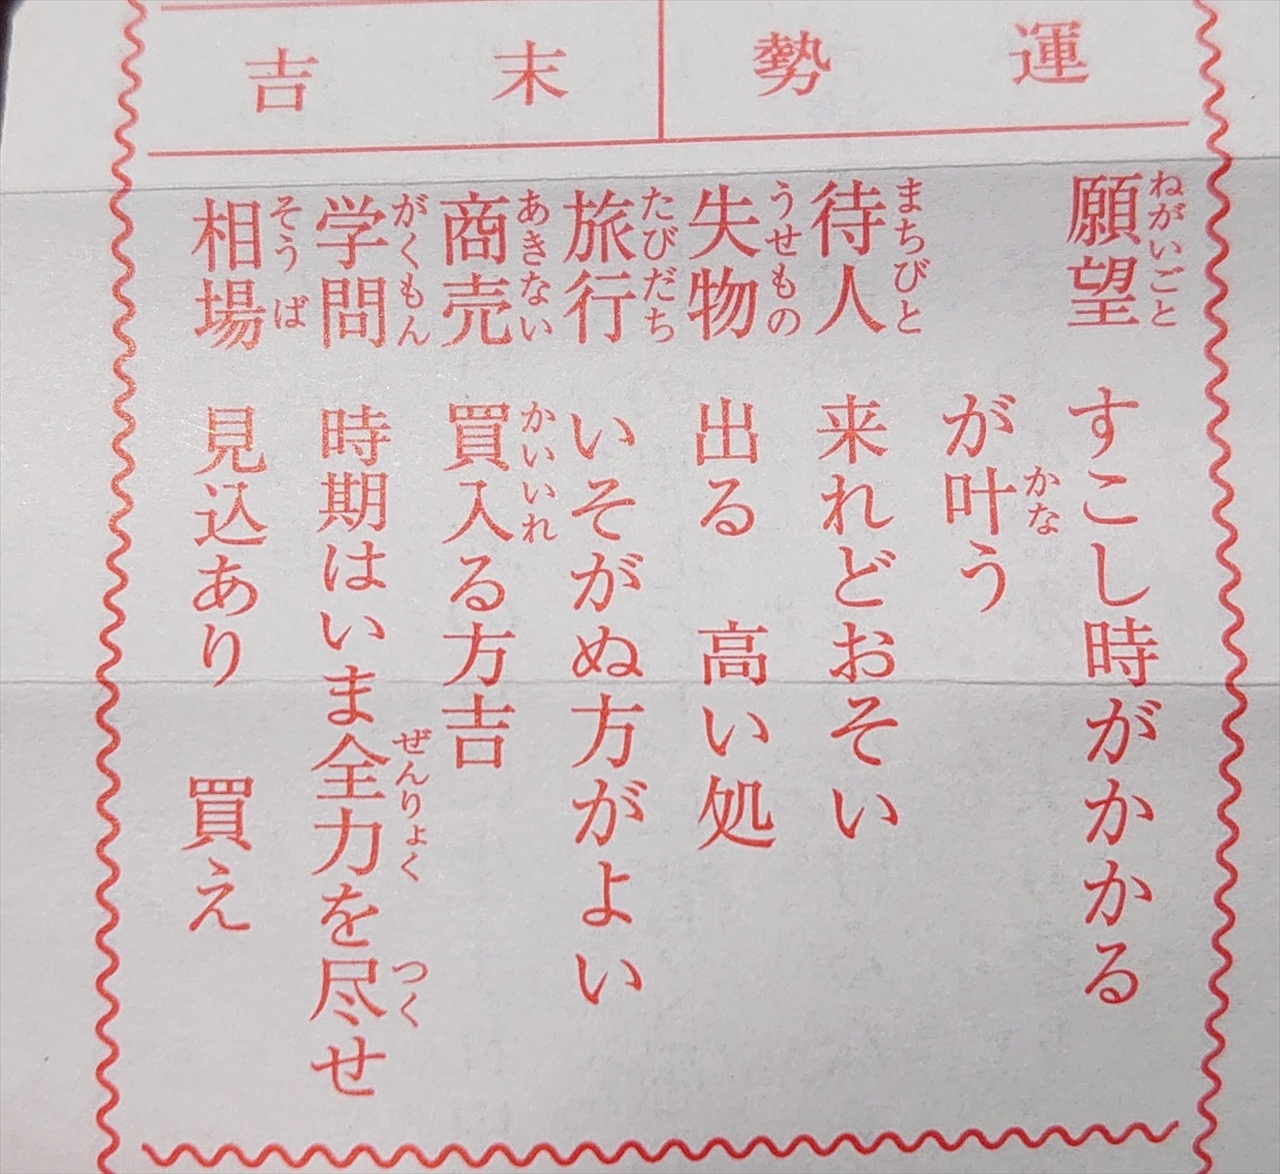 運勢
末吉
願望 ねがいごと すこし時がかかる
が叶う かな
待人 まちびと 来れどおそい
失物 うせもの 出る 高い処
旅行 たびだち いそがぬ方がよい
商売 あきない 買入る方吉 かいいれ
学問 がくもん 時期はいま全力を尽せ ぜんりょく つく
相場 そうば 見込あり 買え